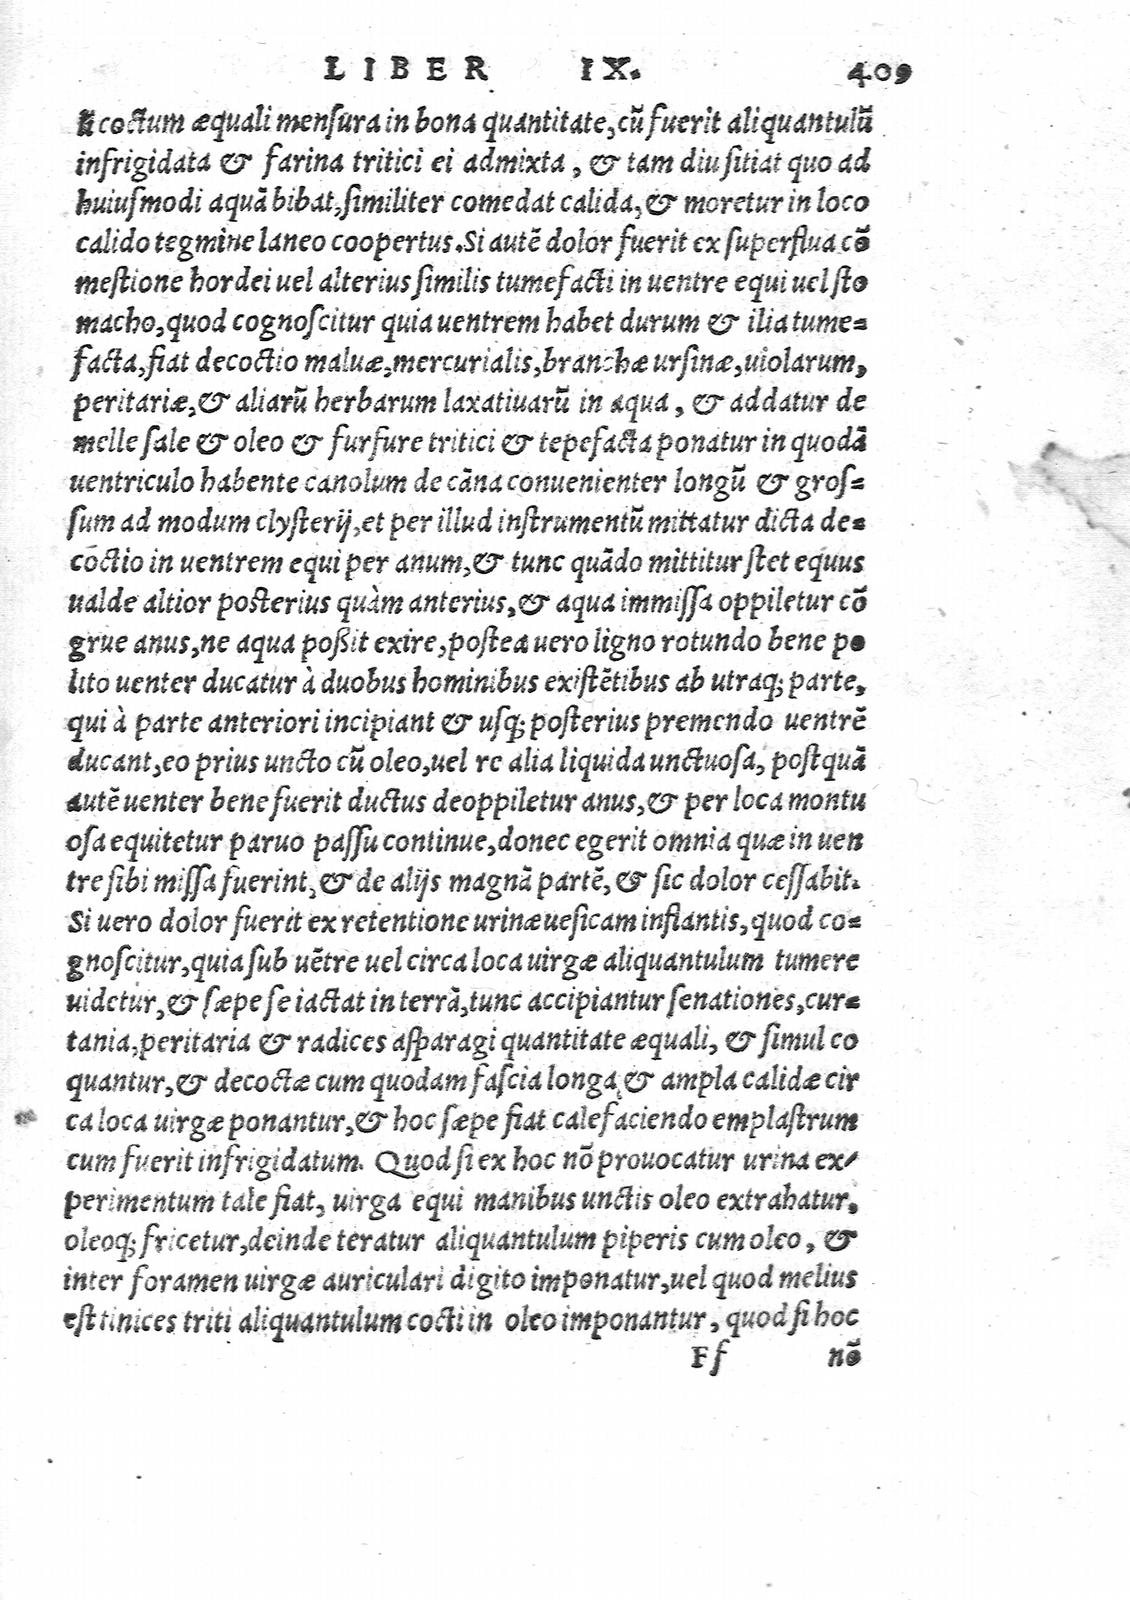 LIBER IX. 409
coctum æquali menſura in bona quantitate, cũ fuerit aliquantulũ
infrigidata & farina tritici ei admixta, & tam diu ſitiat quo ad
huiuſmodi aquã bibat, ſimiliter comedat calida, & moretur in loco
calido tegmine laneo coopertus. Si autẽ dolor fuerit ex ſuperflua cõ
meſtione hordei uel alterius ſimilis tumefacti in uentre equi uel ſto
macho, quod cognoſcitur quia uentrem habet durum & ilia tume=
facta, fiat decoctio maluæ, mercurialis, branchæ urſinæ, uiolarum,
peritariæ, & aliarũ herbarum laxatiuarũ in aqua, & addatur de
melle ſale & oleo & furfure tritici & tepefacta ponatur in quodã
uentriculo habente canolum de cãna conuenienter longũ & groſ=
ſum ad modum clyſterij, et per illud inſtrumentũ mittatur dicta de=
coctio in uentrem equi per anum, & tunc quãdo mittitur ſtet equus
ualde altior poſterius quàm anterius, & aqua immiſſa oppiletur cõ
grue anus, ne aqua poßit exire, poſtea uero ligno rotundo bene po
lito uenter ducatur à duobus hominibus exiſtẽtibus ab utraq; parte,
qui à parte anteriori incipiant & uſq; poſterius premendo uentrẽ
ducant, eo prius uncto cũ oleo, uel re alia liquida unctuoſa, poſtquã
autẽ uenter bene fuerit ductus deoppiletur anus, & per loca montu
oſa equitetur paruo paſſu continue, donec egerit omnia quæ in uen
tre ſibi miſſa fuerint, & de alijs magnã partẽ, & ſic dolor ceſſabit.
Si uero dolor fuerit ex retentione urinæ ueſicam inflantis, quod co=
gnoſcitur, quia ſub uẽtre uel circa loca uirgæ aliquantulum tumere
uidetur, & ſæpe ſe iactat in terrã, tunc accipiantur ſenationes, cur=
tania, peritaria & radices aſparagi quantitate æquali, & ſimul co
quantur, & decoctæ cum quodam faſcia longa & ampla calidæ cir
ca loca uirgæ ponantur, & hoc ſæpe fiat calefaciendo emplaſtrum
cum fuerit infrigidatum. Quod ſi ex hoc nõ prouocatur urina ex/
perimentum tale fiat, uirga equi manibus unctis oleo extrahatur,
oleoq; fricetur, deinde teratur aliquantulum piperis cum oleo, &
inter foramen uirgæ auriculari digito imponatur, uel quod melius
eſt tinices triti aliquantulum cocti in oleo imponantur, quod ſi hoc
Ff nõ